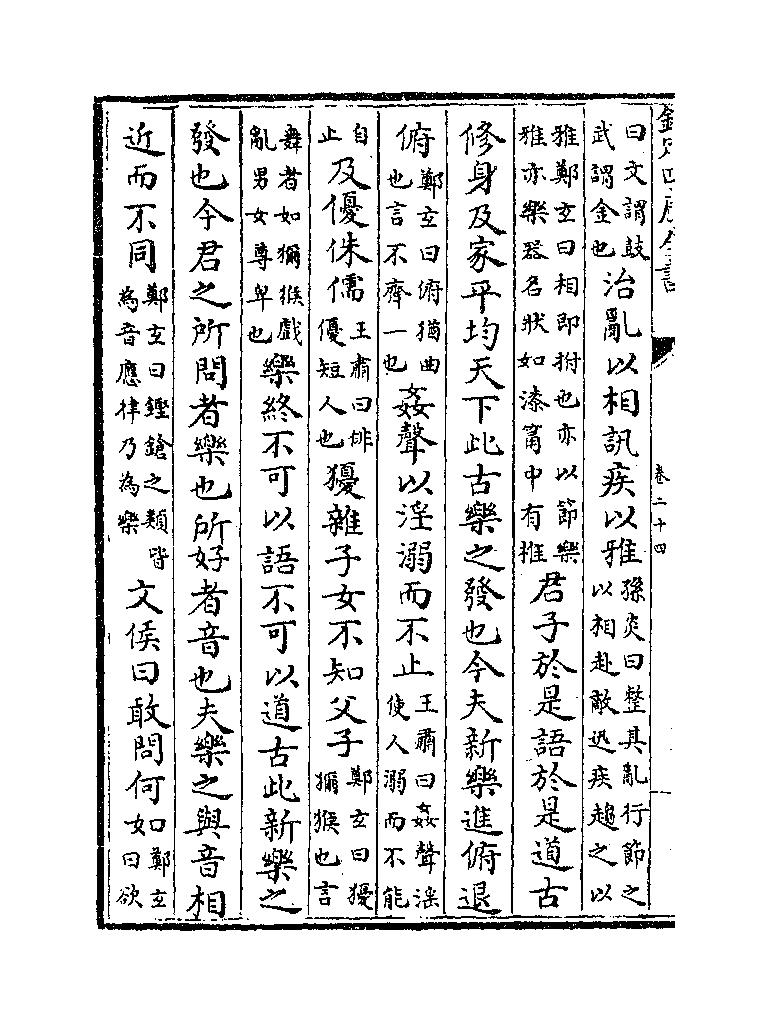 欽定四庫全書 卷二十四
曰文謂鼓武謂金也治亂以相訊疾以雅孫炎曰整其亂行節之以相赴敵迅疾趨之以
雅鄭玄曰相即拊也亦以節樂雅亦樂器名狀如漆筩中有椎君子於是語於是道古
修身及家平均天下此古樂之發也今夫新樂進俯退
俯鄭玄曰俯猶曲也言不齊一也姦聲以淫溺而不止王肅曰姦聲淫使人溺而不能
自止及優侏儒王肅曰俳優短人也獶雜子女不知父子鄭玄曰獶獼猴也言
舞者如獼猴戲亂男女尊卑也樂終不可以語不可以道古此新樂之
發也今君之所問者樂也所好者音也夫樂之與音相
近而不同鄭玄曰鏗鎗之類皆為音應律乃為樂文侯曰敢問何如鄭玄曰欲